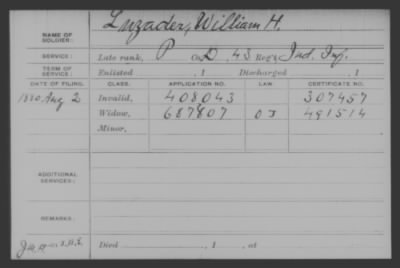 NAME OF SOLDIER: Luzader, William H.
SERVICE: Late rank, P Co. D, 43 Reg't Ind. Inf.
TERM OF SERVICE: Enlisted , 1 Discharged , 1
DATE OF FILING. CLASS. APPLICATION NO. LAW CERTIFICATE NO.
1880 Aug 2 Invalid, 408043 307457
Widow, 687807 491514
Minor,
ADDITIONAL SERVICES:
REMARKS:
Died , 1 , at